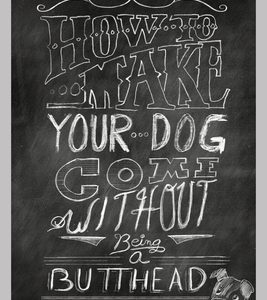 HOW TO
MAKE
YOUR... DOG
COME
WITHOUT
Being
a
BUTTHEAD